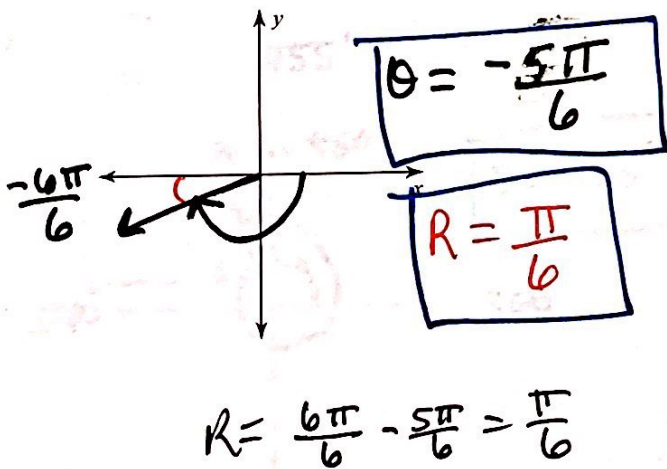 y
θ = -5π/6
-6π/6
x
R = π/6
R = 6π/6 - 5π/6 = π/6